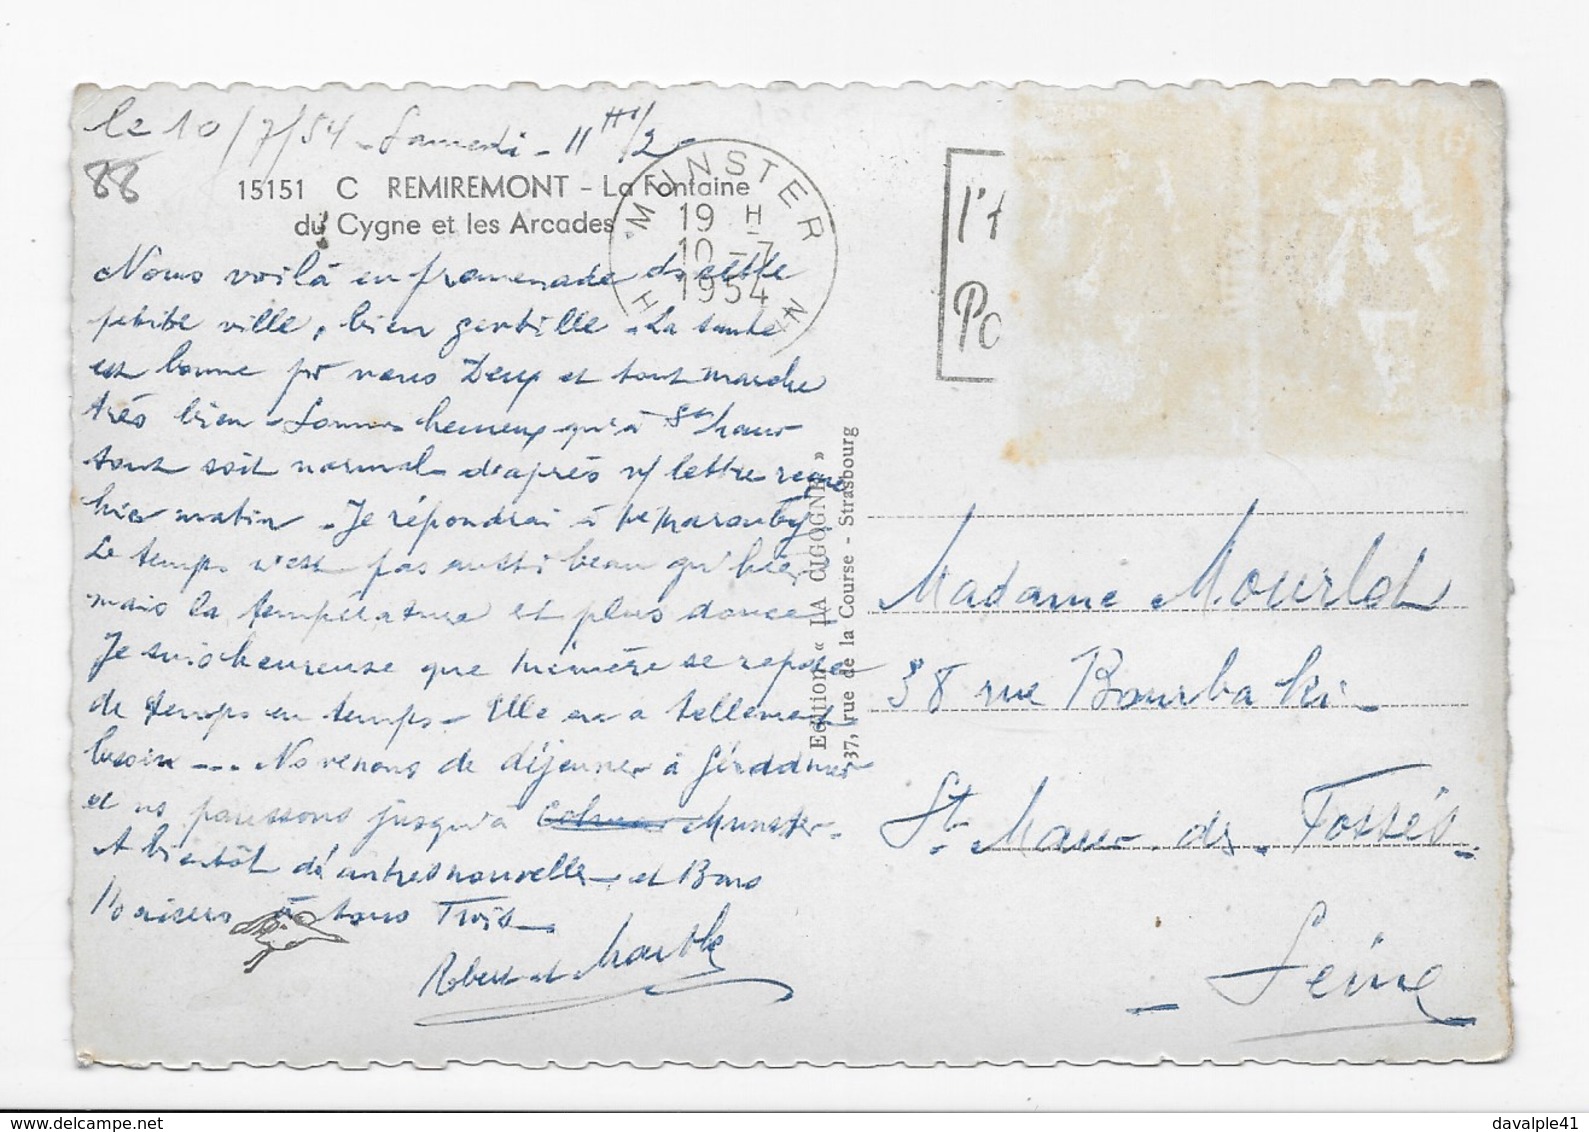 le 10/7/54 - Samedi - 11 H 1/2 -
88
15151 C REMIREMONT - La Fontaine
du Cygne et les Arcades
MUNSTER
19 H
10 - 7
1954
H N
l'A
Po
Nous voilà en promenade ds cette
petite ville, bien gentille - La santé
est bonne pr nous Deux et tout marche
très bien - Sommes heureux qu'à St Maur
tout soit normal d'après v/ lettre reçue
hier matin - Je répondrai à
Le temps n'est pas aussi beau qu'hier
mais la température est plus douce -
Je suis heureuse que mémère se repose
de temps en temps - Elle en a tellement
besoin --- Ns venons de déjeuner à Gérardmer
et ns poussons jusqu'à Colmar Munster -
A bientôt d'autres nouvelles et Bons
Baisers à tous Trois -
Robert et Marthe
Edition « LA CIGOGNE »
37, rue de la Course - Strasbourg
Madame Mourlot
38 rue Bourbaki -
St. Maur. des. Fossés -
- Seine -
davalple41